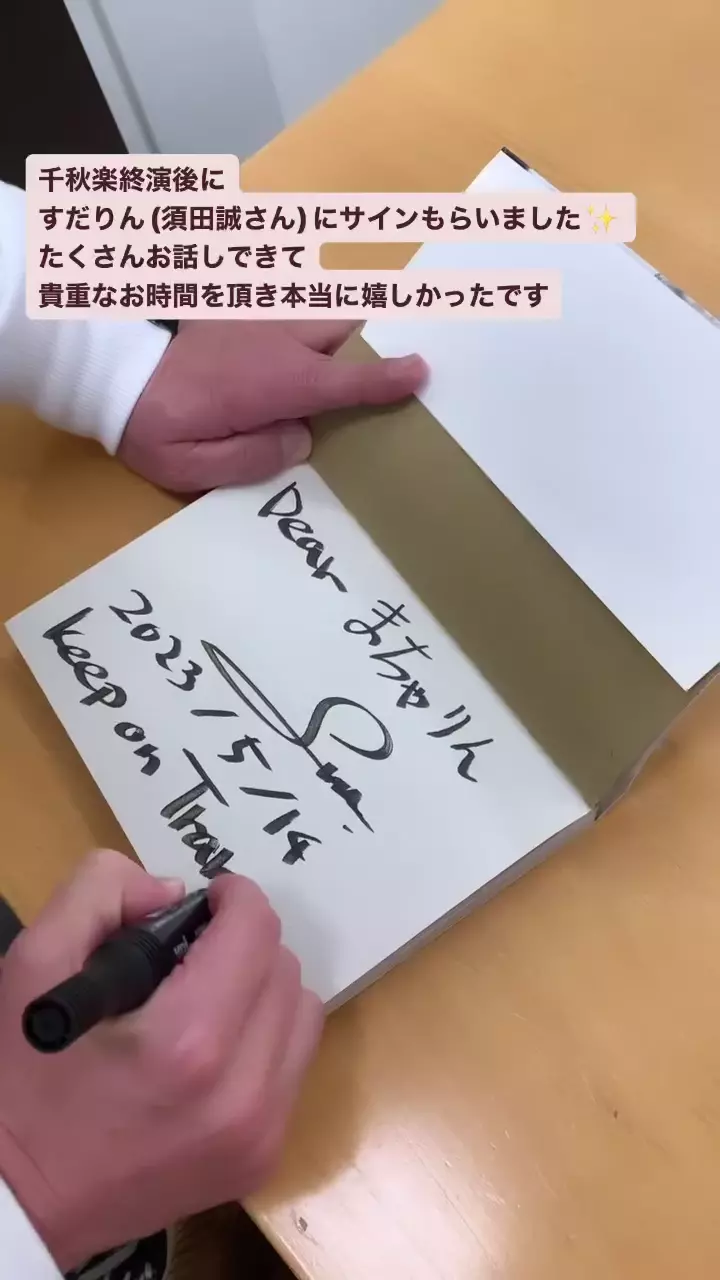 千秋楽終演後に
すだりん(須田誠さん)にサインもらいました✨
たくさんお話しできて
貴重なお時間を頂き本当に嬉しかったです
Dear まちゃりん
2023/5/14
keep on Trav